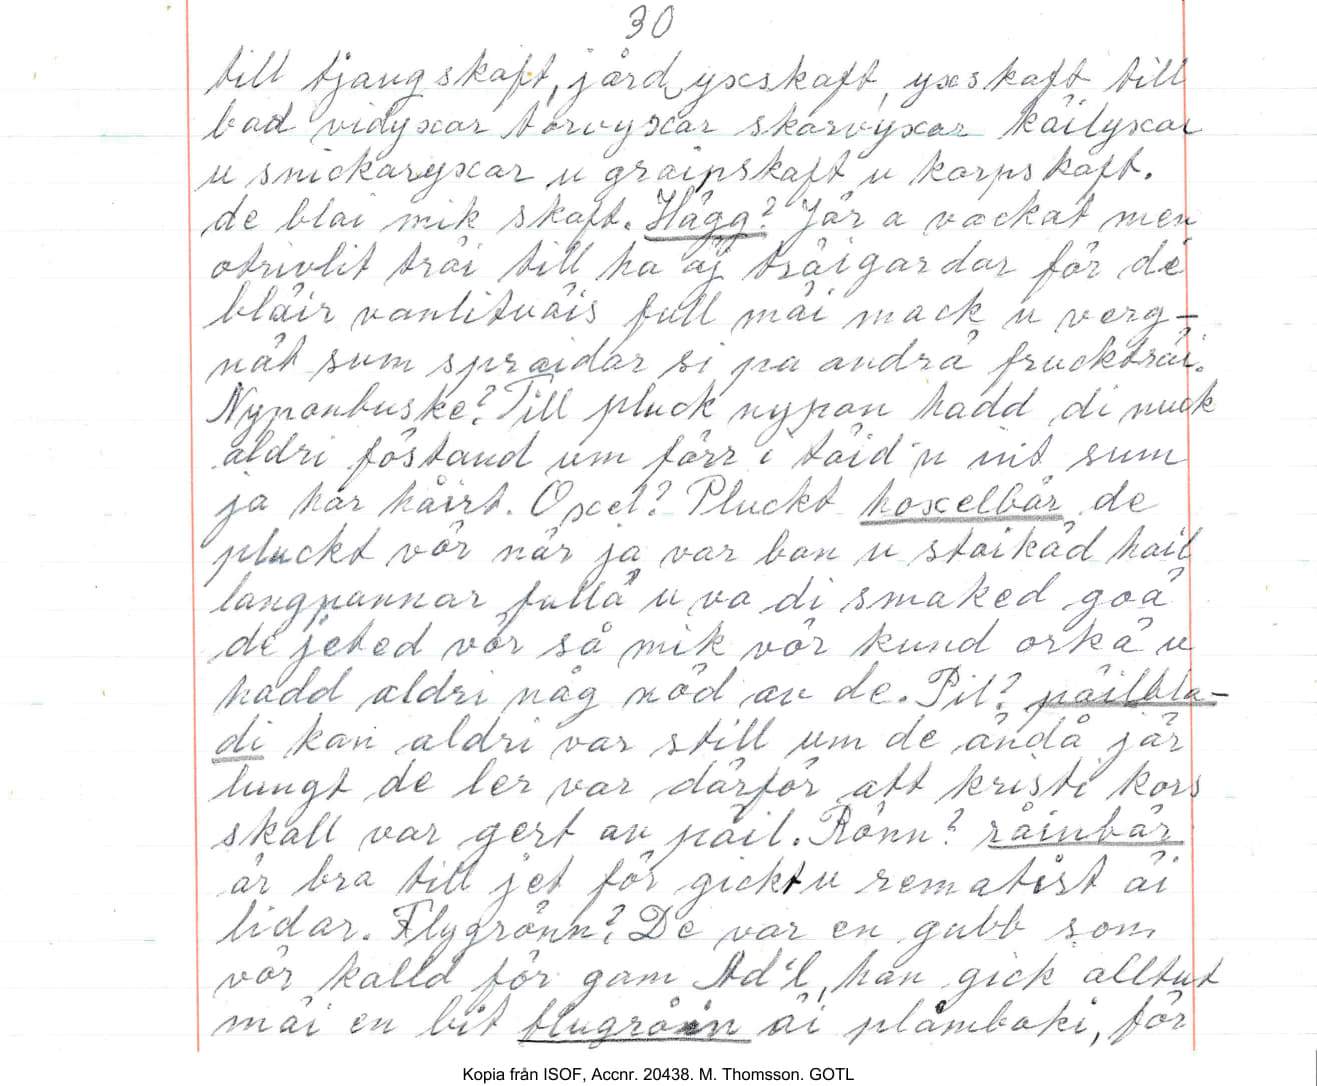 30
till tjangskaft, jård yxskaft, yxskaft till
bad vidyxar torvyxar skarvyxar käilyxar
u snickaryxar u graipskaft u korpskaft.
de blai mik skaft. Hägg? Jär a vackat men
otrivlit träi till ha äj träigardar för de
bläir vanlitväis full mäi mack u verg-
nät sum spraidar si pa andrä fruckträi.
Nyponbuske? Till pluck nypon hadd di nuck
aldri föstand um förr i täid'n int sum
ja har håirt. Oxel? Pluckt hoxelbär de
pluckt vör när ja var ban u staikäd hail
langpannar fullä u va di smaked goä
de jeted vör så mik vör kund orkä u
hadd aldri någ nöd av de. Pil? päilbla-
di kan aldri var still um de ändå jär
lungt de ler var därför att kristi kors
skall var gert av päil. Rönn? råinbär
är bra till jet för gickt u rematist äi
lidar. Flygrönn? De var en gubb som
vör kalld för gam Ad'l, han gick alltut
mäi en bit flugråin äi plånboki, för
Kopia från ISOF, Accnr. 20438. M. Thomsson. GOTL